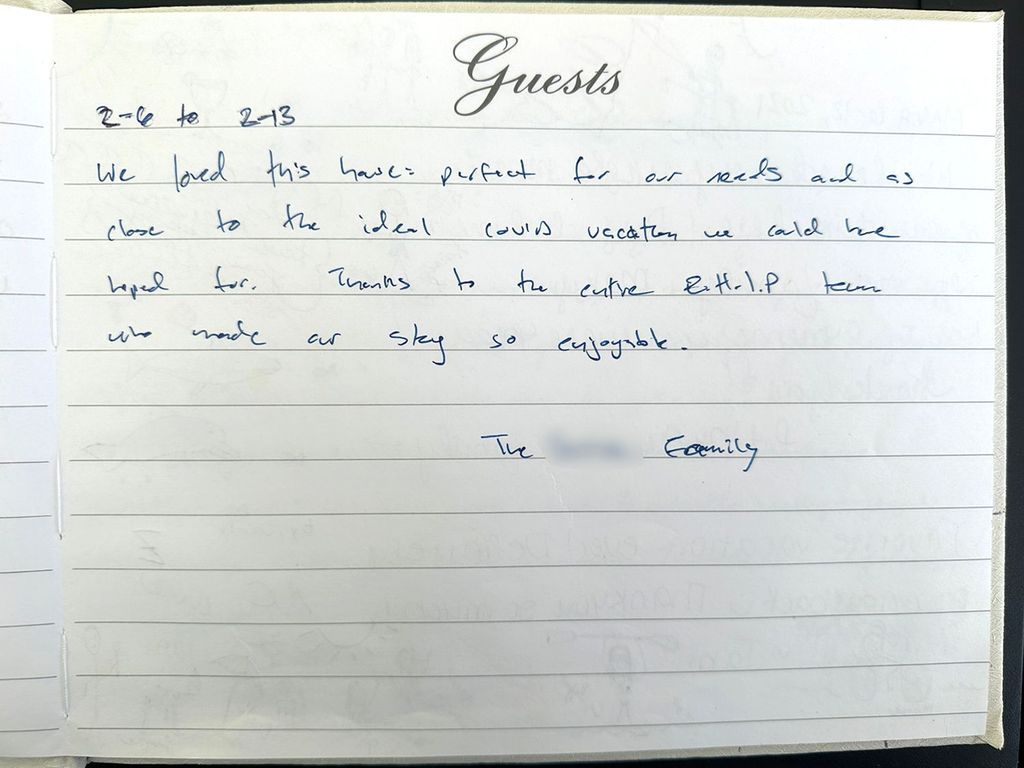 Guests
2-6 to 2-13
We loved this house: perfect for our needs and as
close to the ideal COVID vacation we could have
hoped for. Thanks to the entire E.H.I.P team
who made our stay so enjoyable.
The Family